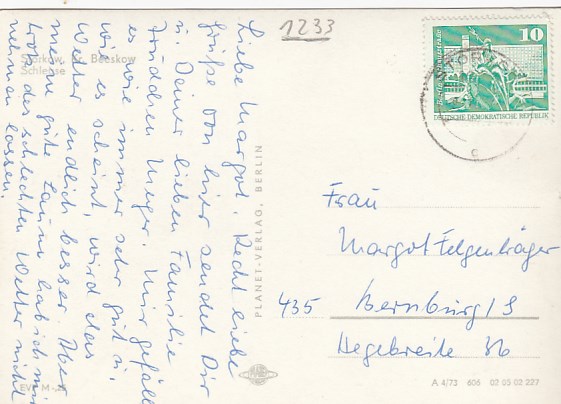 1233
Storkow, Kr. Beeskow
Schleuse
Liebe Margot, Recht liebe
Grüße von hier sendet Dir
u. Deiner lieben Familie
Trudchen Unger. Mir gefällt
es wie immer sehr gut u.
wie es scheint, wird das
Wetter endlich besser. Aber
meine gute Laune hab ich mir
trotz des schlechten Wetter nicht
nehmen lassen.
PLANET-VERLAG, BERLIN
10
DEUTSCHE DEMOKRATISCHE REPUBLIK
STORKOW
c
Frau
Margot Felgenträger
435 Bernburg/S
Hegebreite
EVP M -,20
A 4/73 606 02 05 02 227